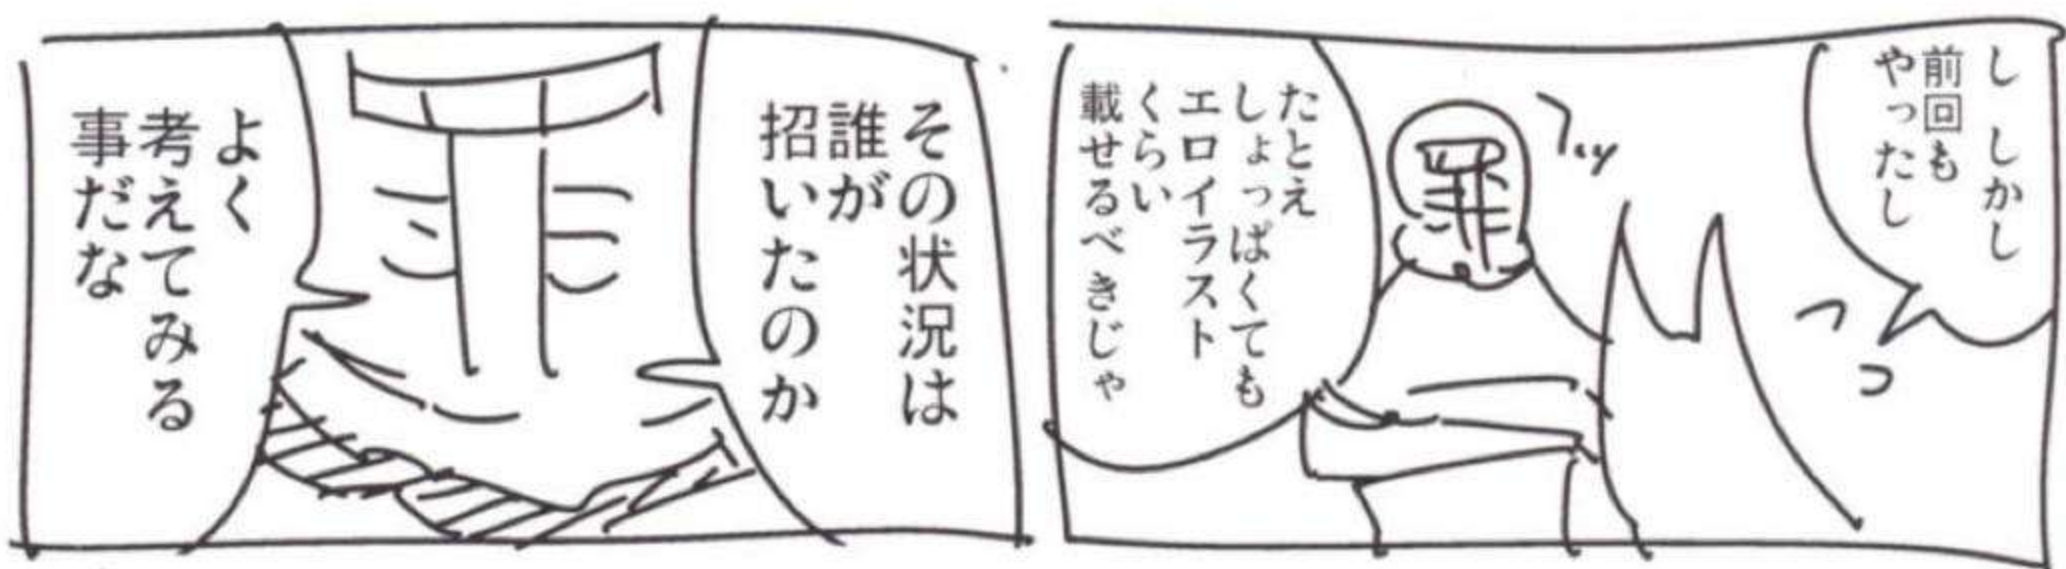 し しかし
前回も
やったし
罪
たとえ
しょっぱくても
エロイラスト
くらい
載せるべきじゃ
その状況は
誰が
招いたのか
よく
考えてみる
事だな